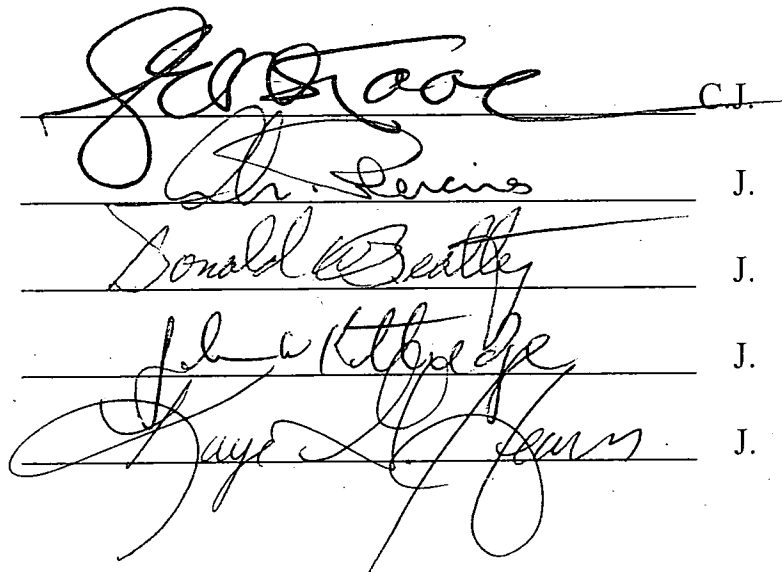 C.J.
J.
Donald W Beatty J.
John W Kittredge J.
Kaye G Hearn J.